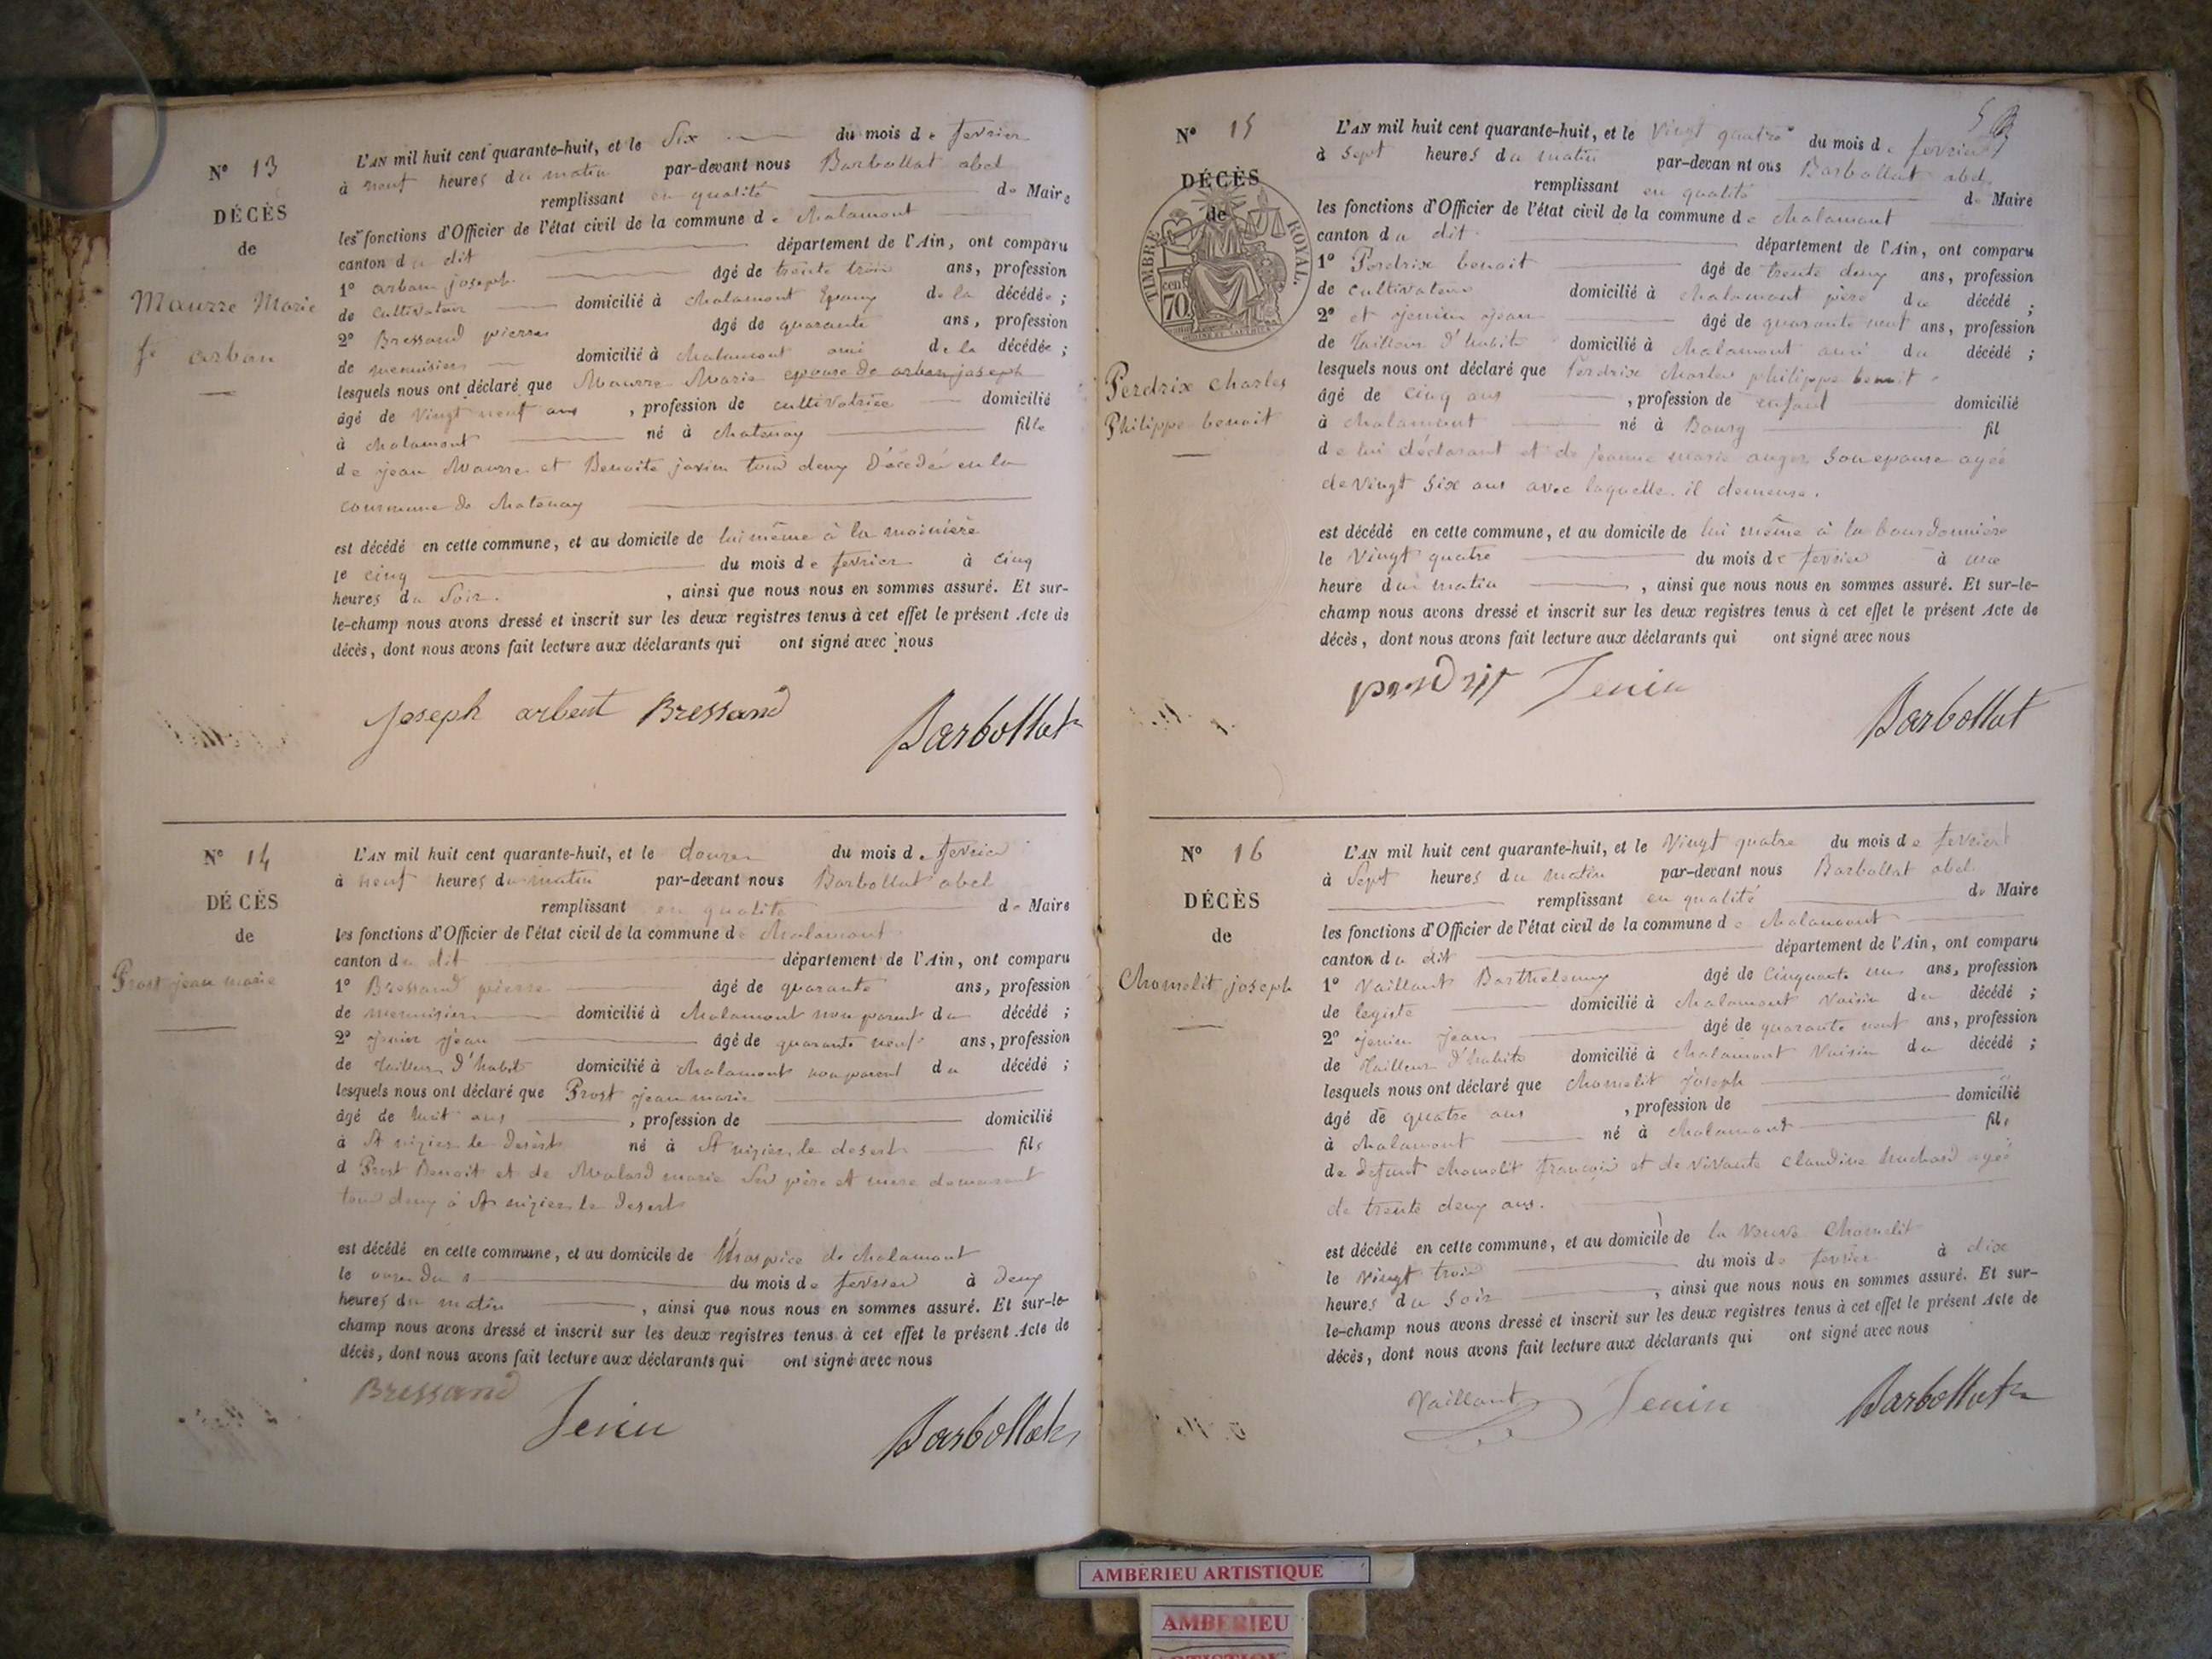 N° 13
DÉCÈS
de
Maurre Marie
fe arban
L'AN mil huit cent quarante-huit, et le Six du mois de fevrier
à neuf heures du matin par-devant nous Barbollat abel
remplissant en qualité de Maire
les fonctions d'Officier de l'état civil de la commune de chalamont
canton du dit département de l'Ain, ont comparu
1° arban joseph âgé de trente trois ans, profession
de Cultivateur domicilié à chalamont Epoux de la décédée ;
2° Bressand pierre âgé de quarante ans, profession
de menuisier domicilié à chalamont ami de la décédée ;
lesquels nous ont déclaré que Maurre Marie epouse de arban joseph
âgé de Vingt neuf ans , profession de cultivatrice domicilié
à chalamont né à chatenay fille
de jean Maurre et Benoite javin tous deux Décédés en la
commune de chatenay
est décédé en cette commune, et au domicile de lui même à la
le cinq du mois de fevrier à cinq
heures du Soir. , ainsi que nous nous en sommes assuré. Et sur-
le-champ nous avons dressé et inscrit sur les deux registres tenus à cet effet le présent Acte de
décès, dont nous avons fait lecture aux déclarants qui ont signé avec nous
Joseph arbent Bressand Barbollat
N° 14
DÉCÈS
de
Prost jean marie
L'AN mil huit cent quarante-huit, et le douze du mois de fevrier
à neuf heures du matin par-devant nous Barbollat abel
remplissant en qualité de Maire
les fonctions d'Officier de l'état civil de la commune de chalamont
canton du dit département de l'Ain, ont comparu
1° Bressand pierre âgé de quarante ans, profession
de menuisier domicilié à chalamont non parent du décédé ;
2° jenin jean âgé de quarante neuf ans, profession
de Tailleur d'habit domicilié à chalamont non parent du décédé ;
lesquels nous ont déclaré que Prost jean marie
âgé de huit ans , profession de domicilié
à St nizier le Desert né à St nizier le desert fils
d Prost Benoit et de Molard marie Ses père et mere demeurant
tous deux à St nizier le Desert
est décédé en cette commune, et au domicile de l'hospice de chalamont
le onze du mois de fevrier à deux
heures du matin , ainsi que nous nous en sommes assuré. Et sur-le-
champ nous avons dressé et inscrit sur les deux registres tenus à cet effet le présent Acte de
décès, dont nous avons fait lecture aux déclarants qui ont signé avec nous
Bressand Jenin Barbollat
N° 15
DÉCÈS
de
TIMBRE ROYAL.
cen 70.
Perdrix Charles
Philippe benoit
L'AN mil huit cent quarante-huit, et le Vingt quatre du mois de fevrier
à Sept heures du matin par-devan nt ous Barbollat abel
remplissant en qualité de Maire
les fonctions d'Officier de l'état civil de la commune de chalamont
canton du dit département de l'Ain, ont comparu
1° Perdrix benoit âgé de trente deux ans, profession
de cultivateur domicilié à chalamont père du décédé ;
2° et jenin jean âgé de quarante neuf ans, profession
de Tailleur d'habits domicilié à chalamont ami du décédé ;
lesquels nous ont déclaré que Perdrix charles philippe benoit
âgé de cinq ans , profession de enfant domicilié
à chalamont né à Bourg fil
de lui déclarant et de jeanne marie auger Son epouse agée
de Vingt Six ans avec laquelle il demeure.
est décédé en cette commune, et au domicile de lui même à la bourdonnière
le Vingt quatre du mois de fevrier à une
heure du matin , ainsi que nous nous en sommes assuré. Et sur-le-
champ nous avons dressé et inscrit sur les deux registres tenus à cet effet le présent Acte de
décès, dont nous avons fait lecture aux déclarants qui ont signé avec nous
Jenin Barbollat
N° 16
DÉCÈS
de
Chomelit joseph
L'AN mil huit cent quarante-huit, et le Vingt quatre du mois de fevrier
à Sept heures du matin par-devant nous Barbollat abel
remplissant en qualité de Maire
les fonctions d'Officier de l'état civil de la commune de chalamont
canton du dit département de l'Ain, ont comparu
1° Vaillant Barthelemy âgé de Cinquante un ans, profession
de legiste domicilié à chalamont Voisin du décédé ;
2° jenin jean âgé de quarante neuf ans, profession
de Tailleur d'habits domicilié à chalamont Voisin du décédé ;
lesquels nous ont déclaré que chomelit joseph
âgé de quatre ans , profession de domicilié
à chalamont né à chalamont fils
de defunt chomelit françois et de vivante claudine agée
de trente deux ans.
est décédé en cette commune, et au domicile de la Veuve Chomelit
le Vingt trois du mois de fevrier à dix
heures du Soir , ainsi que nous nous en sommes assuré. Et sur-
le-champ nous avons dressé et inscrit sur les deux registres tenus à cet effet le présent Acte de
décès, dont nous avons fait lecture aux déclarants qui ont signé avec nous
Vaillant Jenin Barbollat
AMBERIEU ARTISTIQUE
AMBERIEU
ARTISTIQUE